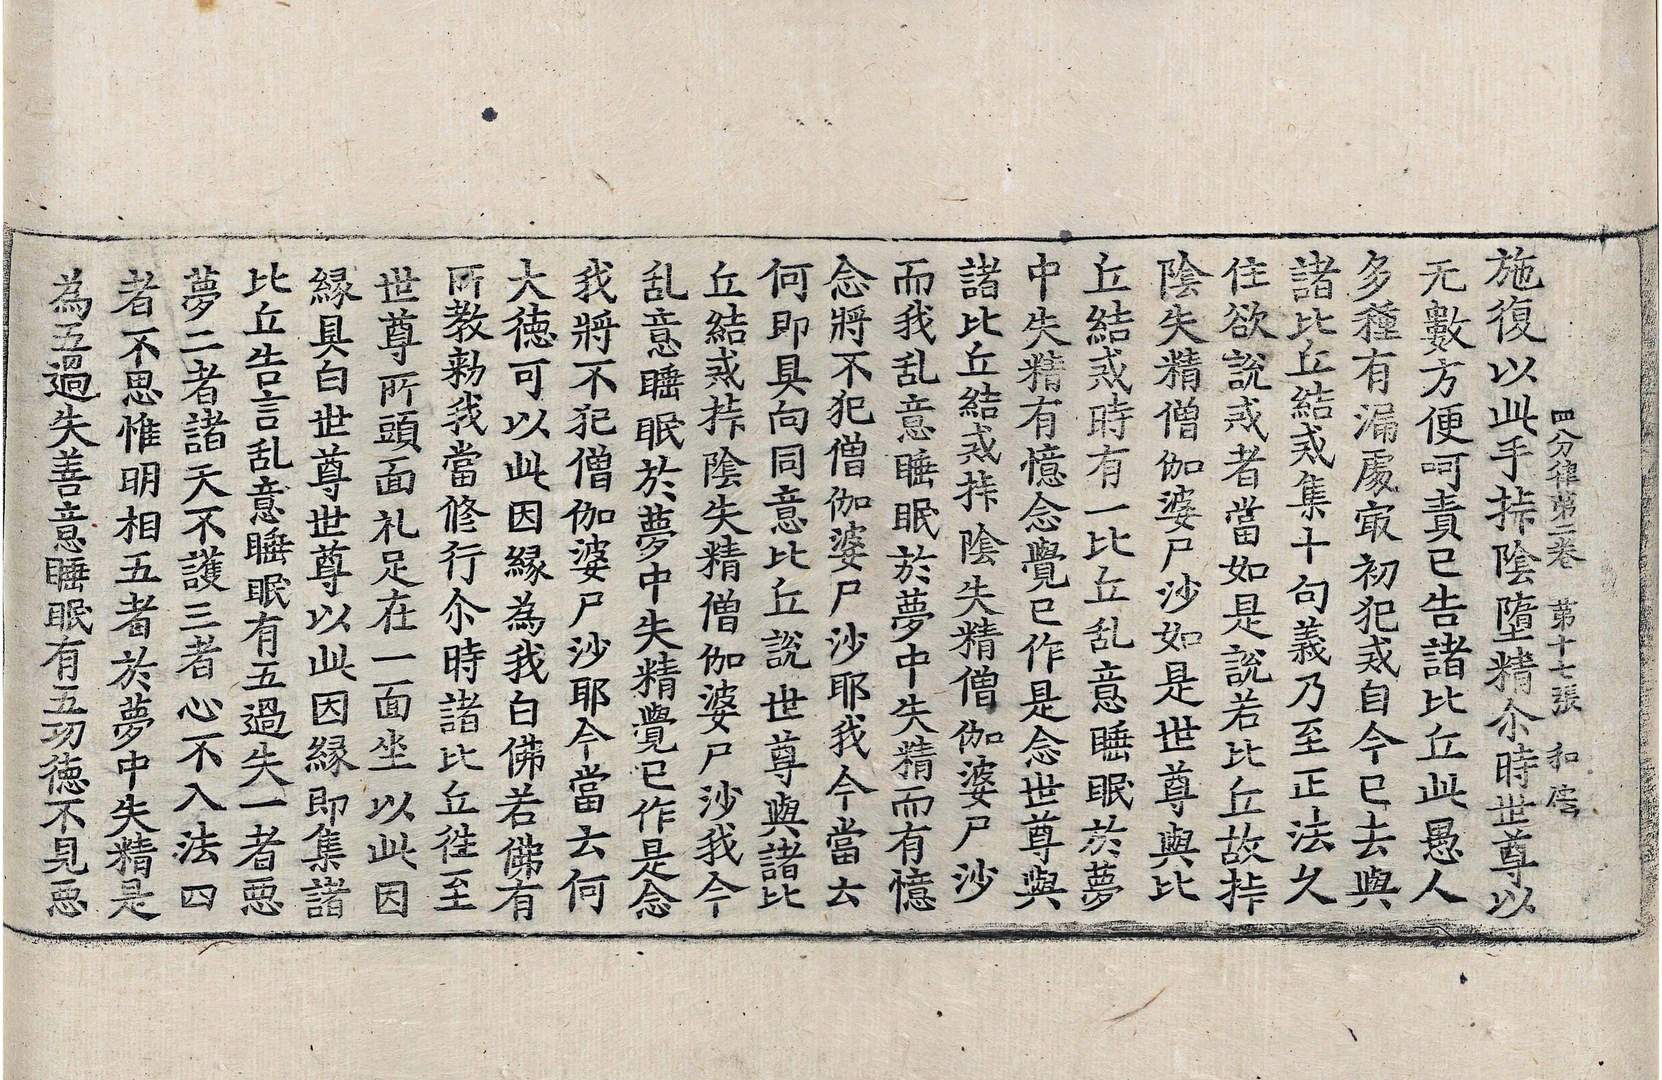 四分律第二卷 第十七張 和
施復以此手捽陰墮精尒時世尊以
无數方便呵責已告諸比丘此愚人
多種有漏處㝡初犯戒自今已去與
諸比丘結戒集十句義乃至正法久
住欲說戒者當如是說若比丘故捽
陰失精僧伽婆尸沙如是世尊與比
丘結戒時有一比丘乱意睡眠於夢
中失精有憶念覺已作是念世尊與
諸比丘結戒捽陰失精僧伽婆尸沙
而我乱意睡眠於夢中失精而有憶
念將不犯僧伽婆尸沙耶我今當云
何即具向同意比丘說世尊與諸比
丘結戒捽陰失精僧伽婆尸沙我今
乱意睡眠於夢中失精覺已作是念
我將不犯僧伽婆尸沙耶今當云何
大德可以此因縁為我白佛若佛有
所教勑我當修行尒時諸比丘徃至
世尊所頭面礼足在一面坐以此因
縁具白世尊世尊以此因縁即集諸
比丘告言乱意睡眠有五過失一者惡
夢二者諸天不護三者心不入法四
者不思惟明相五者於夢中失精是
為五過失善意睡眠有五功德不見惡